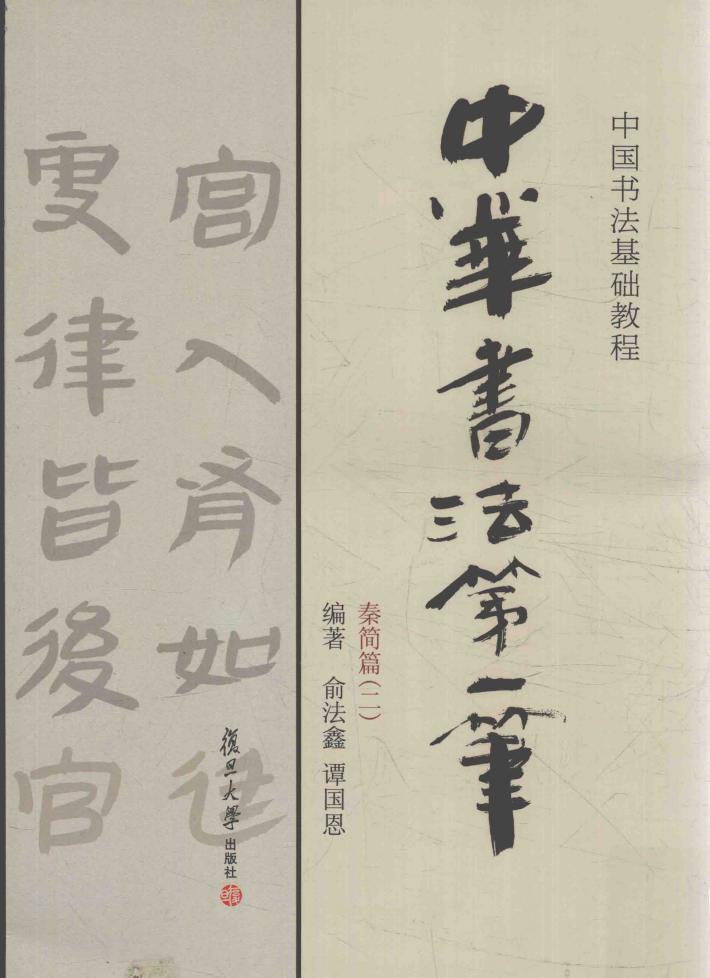 中国书法基础教程
中華書法第一筆
秦简篇（二）
编著 俞法鑫 谭国恩
宫入胥如
律皆後官
復旦大學出版社